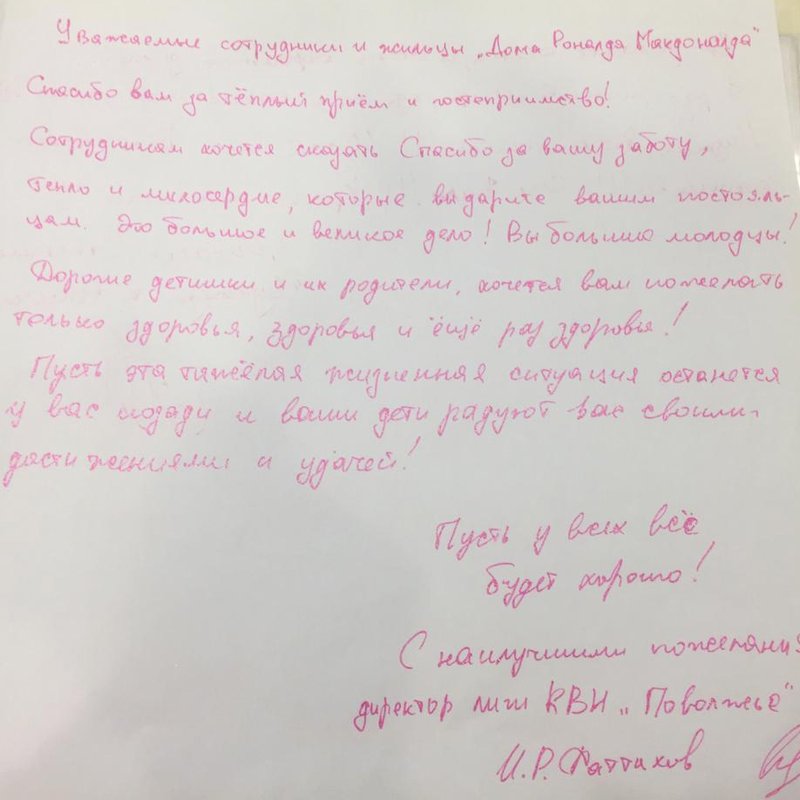 Уважаемые сотрудники и жильцы „Дома Роналда Макдоналда"
Спасибо вам за тёплый приём и гостеприимство!
Сотрудникам хочется сказать Спасибо за вашу заботу,
тепло и милосердие, которые вы дарите вашим постояль-
цам. Это большое и великое дело! Вы большие молодцы!
Дорогие детишки и их родители, хочется вам пожелать
только здоровья, здоровья и ещё раз здоровья!
Пусть эта тяжёлая жизненная ситуация останется
у вас позади и ваши дети радуют вас своими
достижениями и удачей!
Пусть у всех всё
будет хорошо!
С наилучшими пожелания
директор лиги КВН „Поволжье"
И.Р. Фаттахов